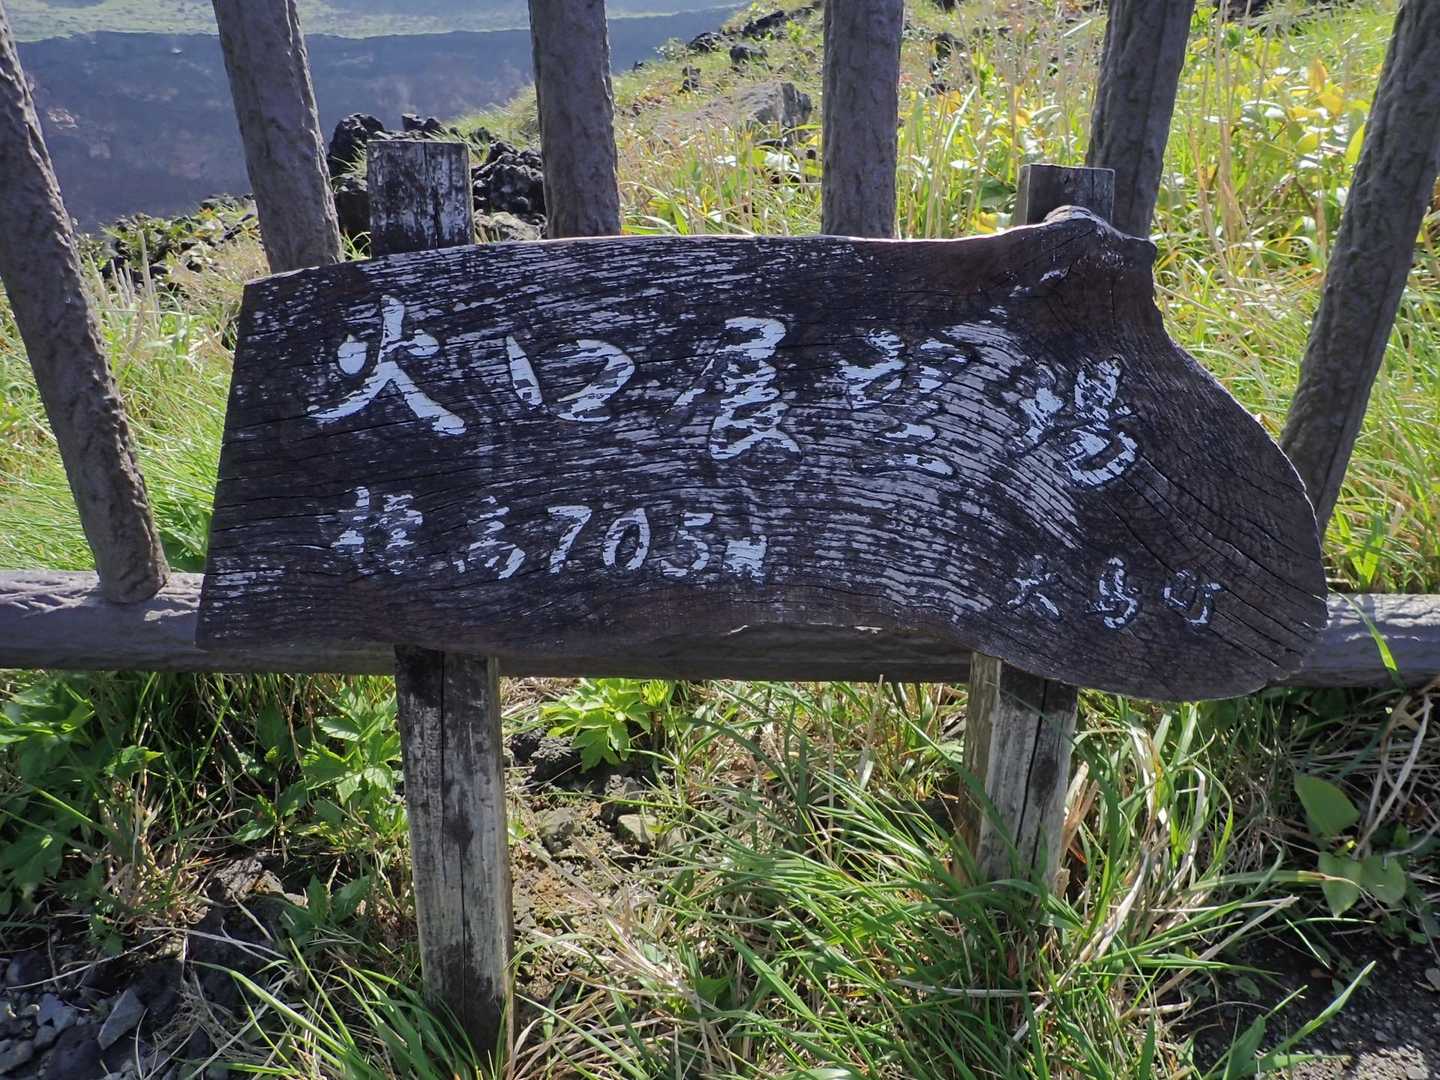 火口展望場
標高705m
大島町